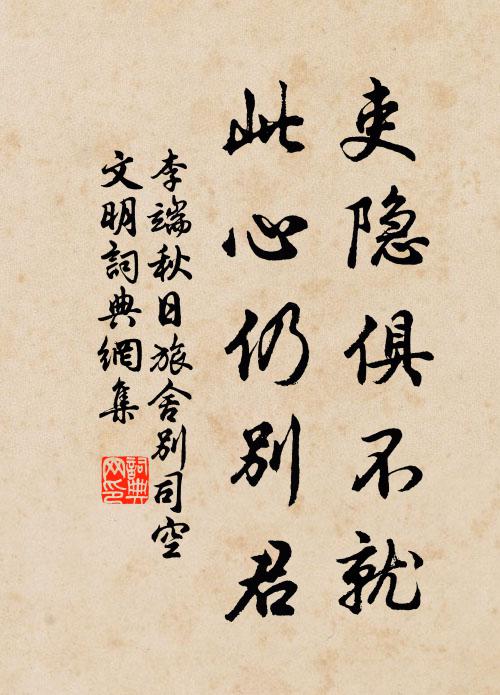 吏隐俱不就
此心仍別君
李端秋日旅舍別司空
文明詞典網集
詞典
网印